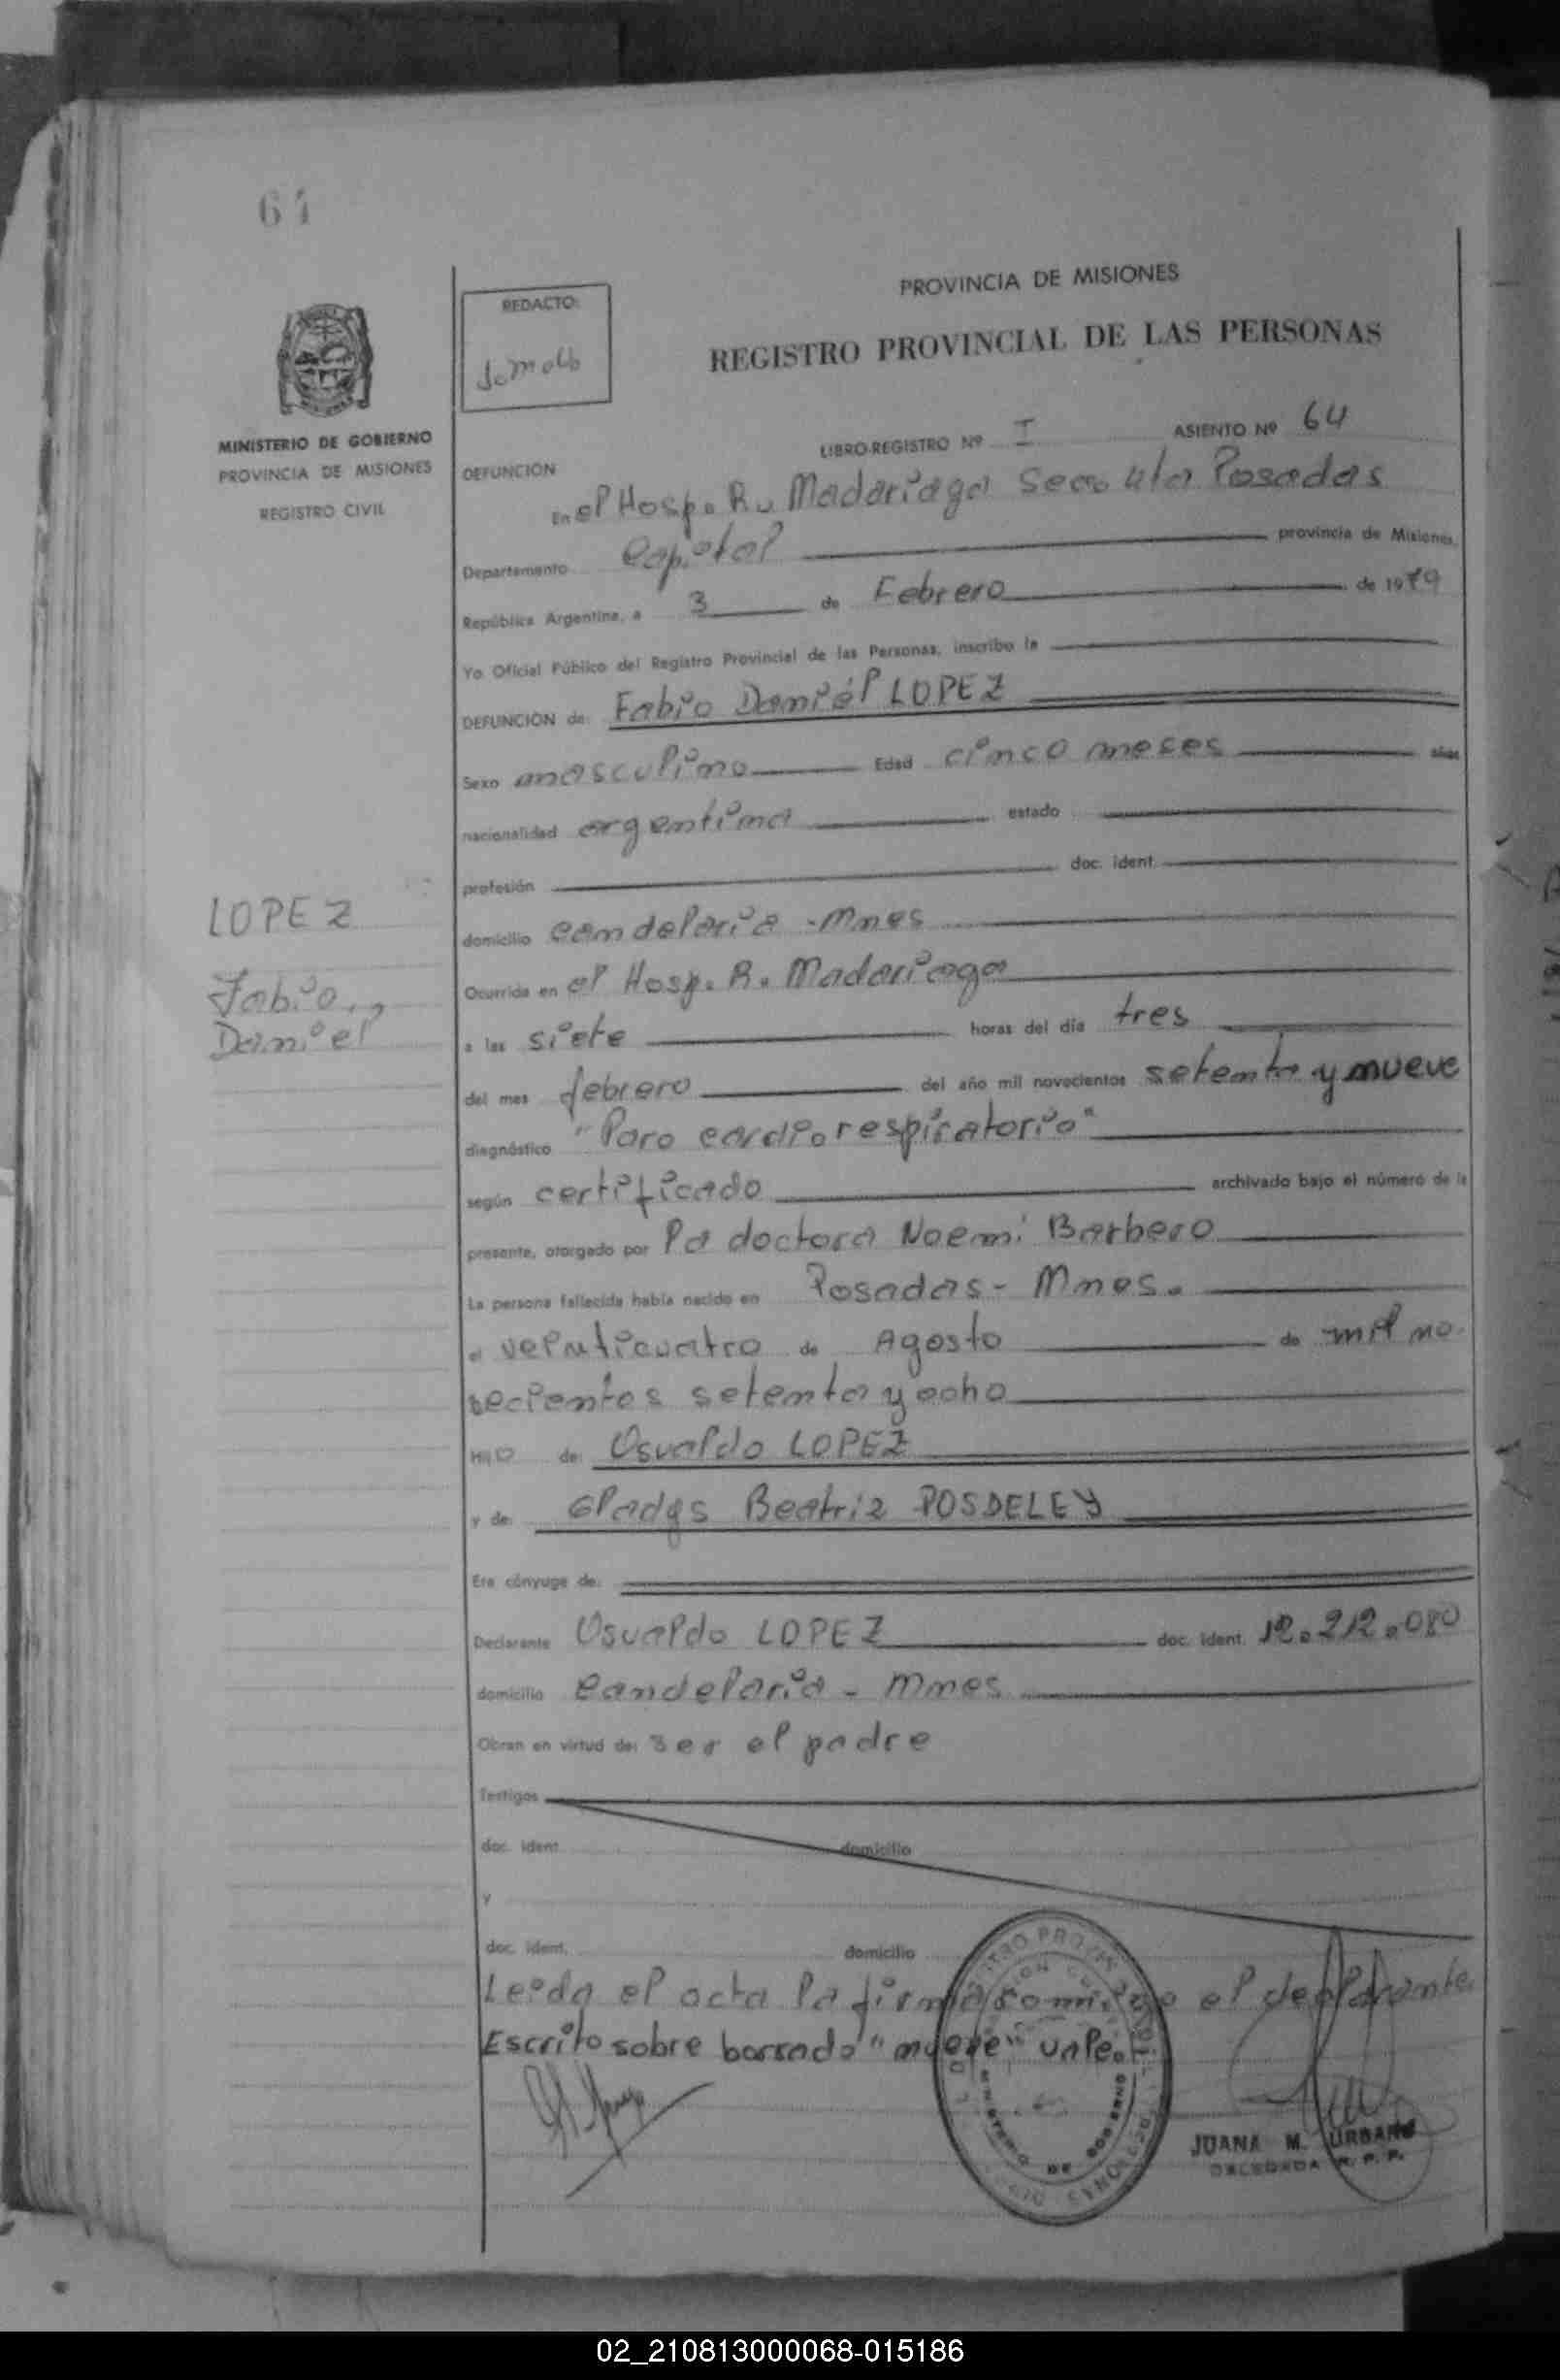 61
PROVINCIA DE MISIONES
REDACTO:
REGISTRO PROVINCIAL DE LAS PERSONAS
MINISTERIO DE GOBIERNO
PROVINCIA DE MISIONES
REGISTRO CIVIL
LIBRO-REGISTRO Nº I ASIENTO Nº 64
DEFUNCION
En el Hosp. R. Madariaga Secc. 4ta Posadas
Departamento Capital provincia de Misiones,
República Argentina, a 3 de Febrero de 1979
Yo Oficial Público del Registro Provincial de las Personas, inscribo la
DEFUNCION de: Fabio Daniel LOPEZ
Sexo masculino Edad cinco meses años
nacionalidad argentina estado
profesión doc. ident.
LOPEZ
domicilio Candelaria - Mnes
Fabio,,
Daniel
Ocurrida en el Hosp. R. Madariaga
a las siete horas del día tres
del mes febrero del año mil novecientos setenta y nueve
diagnóstico "Paro cardiorespiratorio"
según certificado archivado bajo el número de la
presente, otorgado por la doctora Noemi Barbero
La persona fallecida había nacido en Posadas - Mnes.
el veinticuatro de Agosto de mil no
vecientos setenta y ocho
Hijo de: Osvaldo LOPEZ
y de: Gladys Beatriz POSDELEY
Era cónyuge de:
Declarante Osvaldo LOPEZ doc. ident. 12.212.080
domicilio Candelaria - Mnes
Obran en virtud de: ser el padre
Testigos
doc. ident. domicilio
y
doc. ident. domicilio
Leida el acta la firma conmigo el declarante
Escrito sobre borrado "nueve" vale.
MINISTERIO DE GOBIERNO
JUANA M. URBANO
DELEGADA R. P. P.
02_210813000068-015186